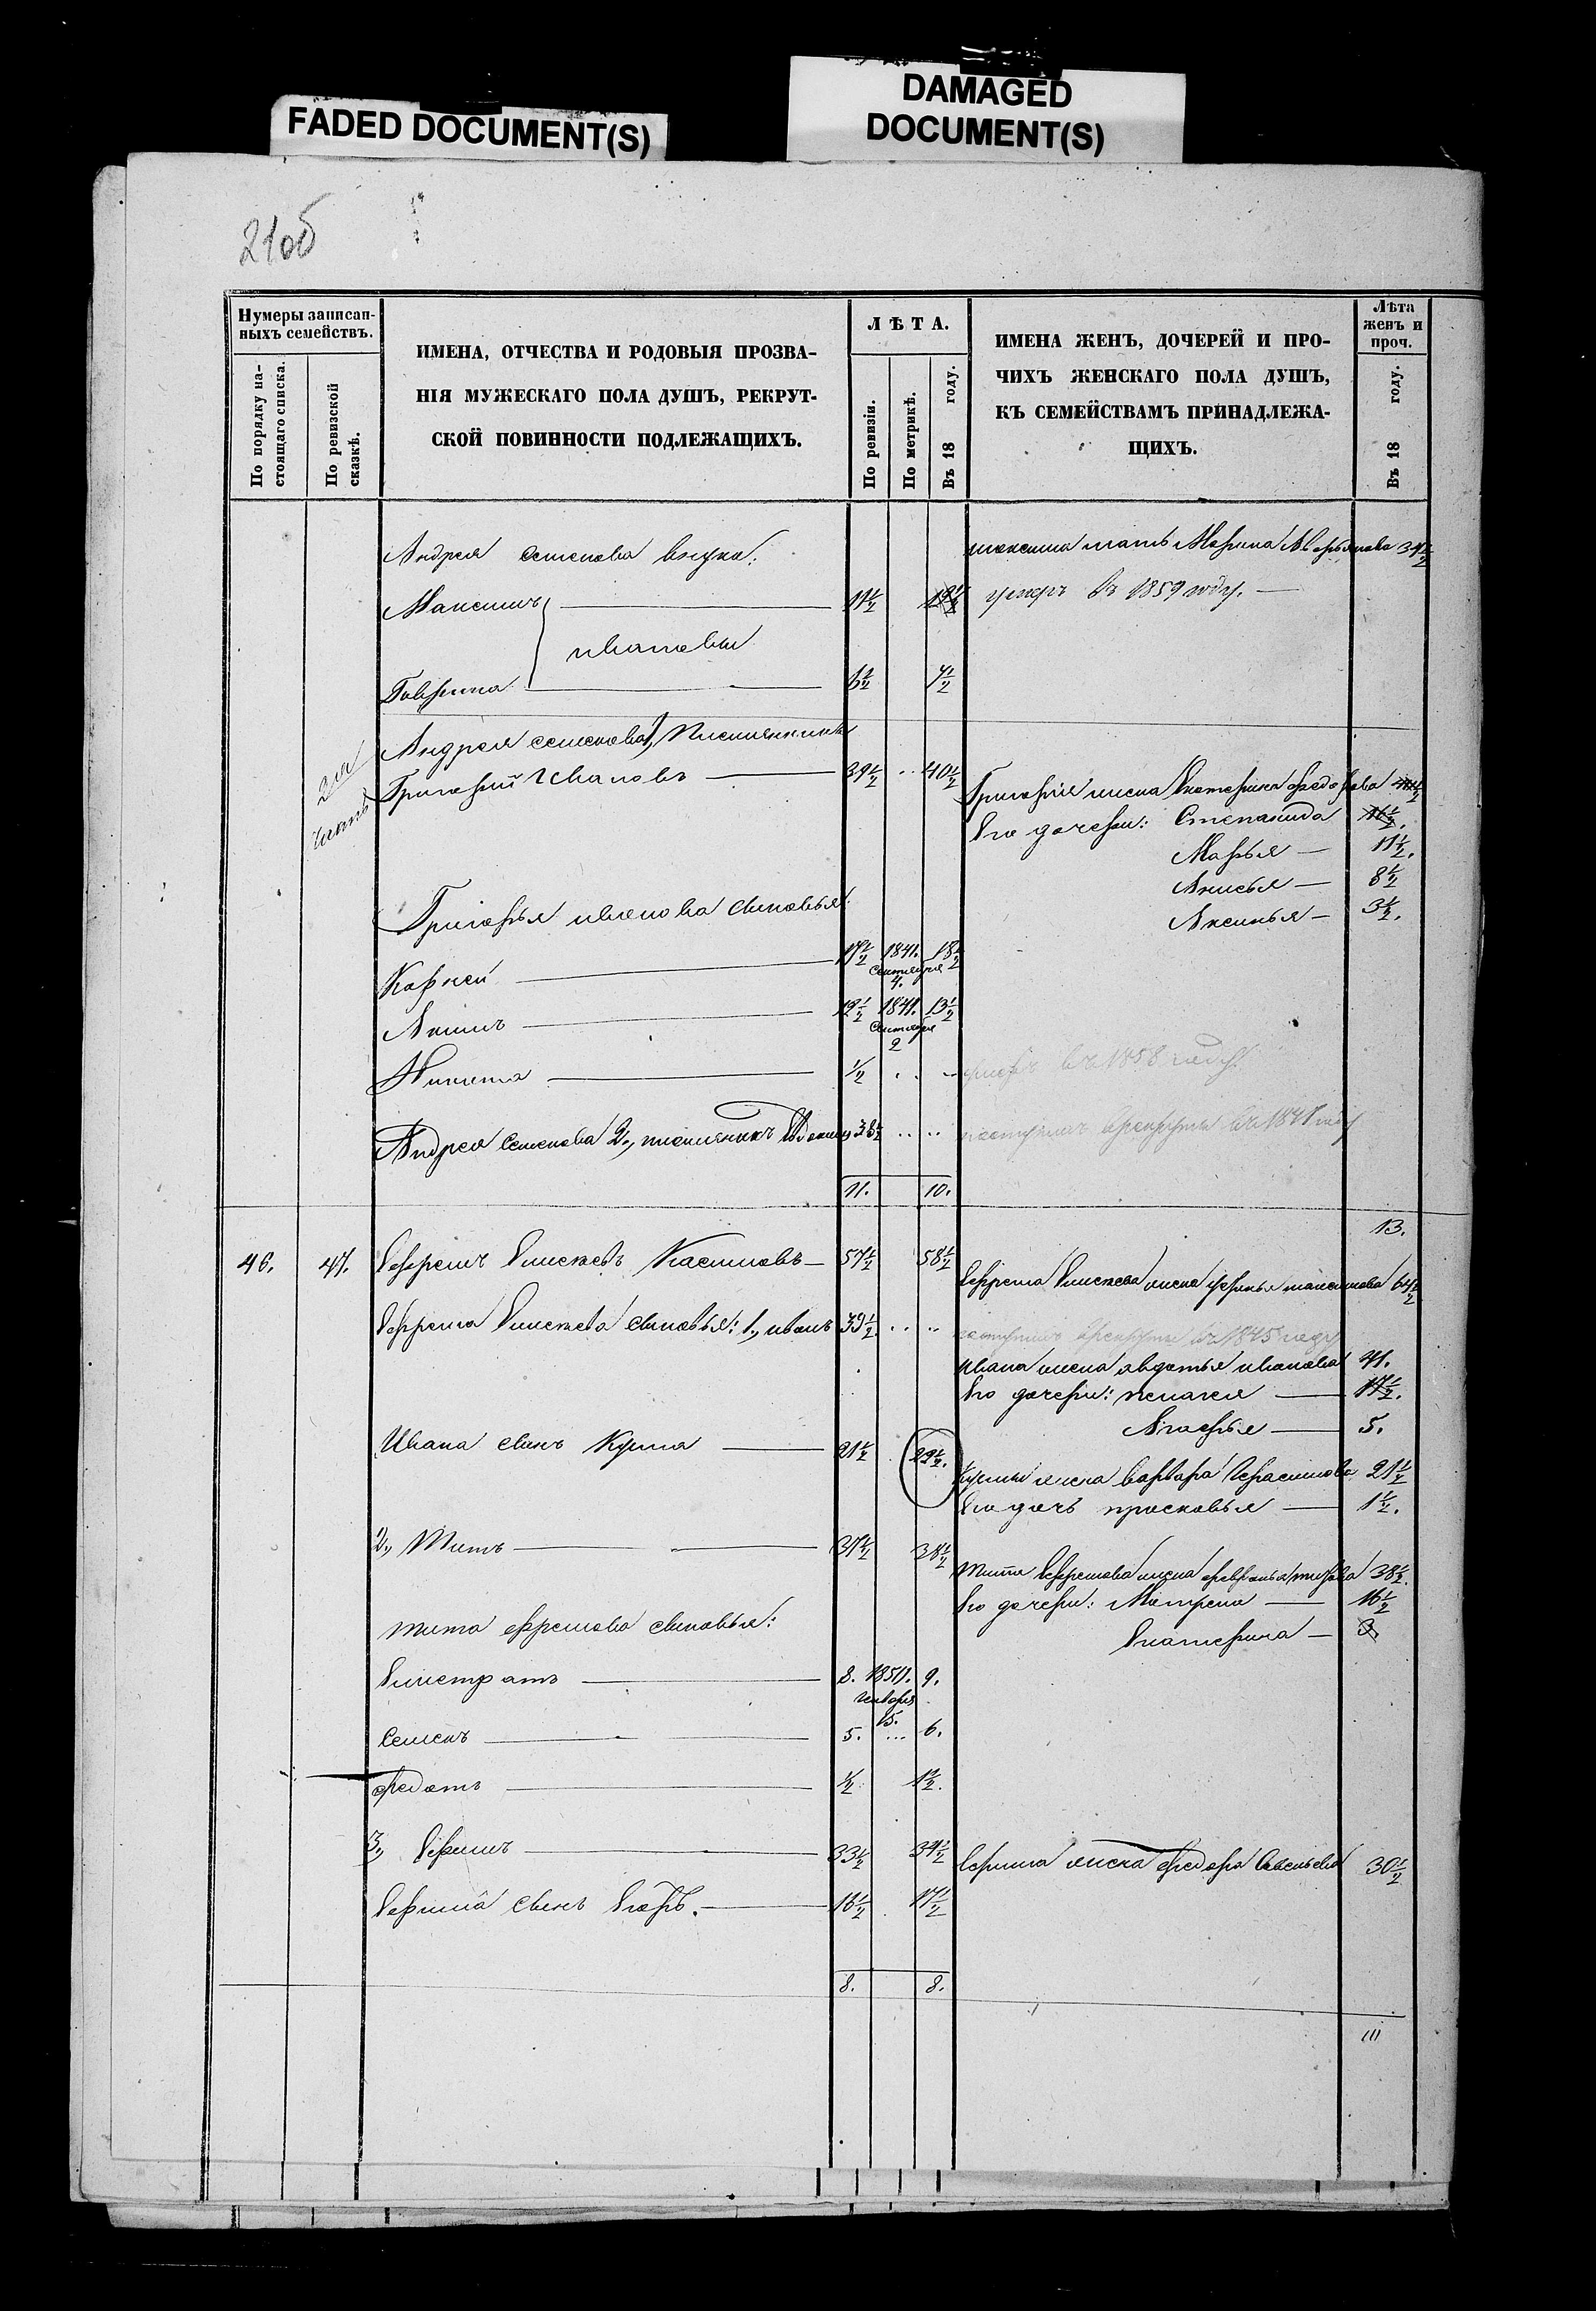 FADED DOCUMENT(S)
DAMAGED
DOCUMENT(S)
21об
Нумеры записан-
ныхъ семействъ.
По порядку на-
стоящаго списка.
По ревизской
сказкѣ.
ИМЕНА, ОТЧЕСТВА И РОДОВЫЯ ПРОЗВА-
НІЯ МУЖЕСКАГО ПОЛА ДУШЪ, РЕКРУТ-
СКОЙ ПОВИННОСТИ ПОДЛЕЖАЩИХЪ.
ЛѢТА.
По ревизіи.
По метрикѣ.
Въ 18 году.
ИМЕНА ЖЕНЪ, ДОЧЕРЕЙ И ПРО-
ЧИХЪ ЖЕНСКАГО ПОЛА ДУШЪ,
КЪ СЕМЕЙСТВАМЪ ПРИНАДЛЕЖА-
ЩИХЪ.
Лѣта
женъ и
проч.
Въ 18 году.
Андрея семенова внука:
максима мать Марина
Максимъ 11½
умеръ въ 1859 году.
ивановы
Гаврила 6½ 7½
Андрея семенова 1, племянникъ
2я часть
Григорий Ивановъ 39½ 40½
Григорья жена Катерина федорова
Его дочери: Степанида
Марья 11½.
Анисья 8½
Аксинья 3½.
Григорья иванова сыновья:
Карней 17½ 1841. Сентября 4. 18½
Акимъ 12½ 1841. Сентября 2 13½
Никита ½
умеръ въ 1858 году
Андрея семенова 2, племянникъ Евдокимъ
поступилъ врекруты въ
11. 10.
13.
46. 47. Ефремъ Елисеевъ Касимовъ 57½ 58½
Ефрема Елисеева жена максимова 64½
Ефрема Елисеева сыновья: 1, иванъ 39½
поступилъ врекруты въ 1845 году
Ивана жена авдотья иванова 41.
Его дочери: пелагея 17½.
Агафья 5.
Ивана сынъ Кузма 21½ 22½.
Кузмы жена варвара Герасимова 21½
Его дочь прасковья 1½.
2, Титъ 37½ 38½
Тита Ефремова жена 38½.
Его дочери: Матрена 16½
Екатерина 3.
тита ефремова сыновья:
Елистратъ 8. 1850. Января 15. 9.
Семенъ 5. 6.
федотъ ½ 1½.
3, Ефимъ 33½ 34½
Ефима жена федора Савельева 30½
Ефима сынъ Егоръ. 16½ 17½
8. 8.